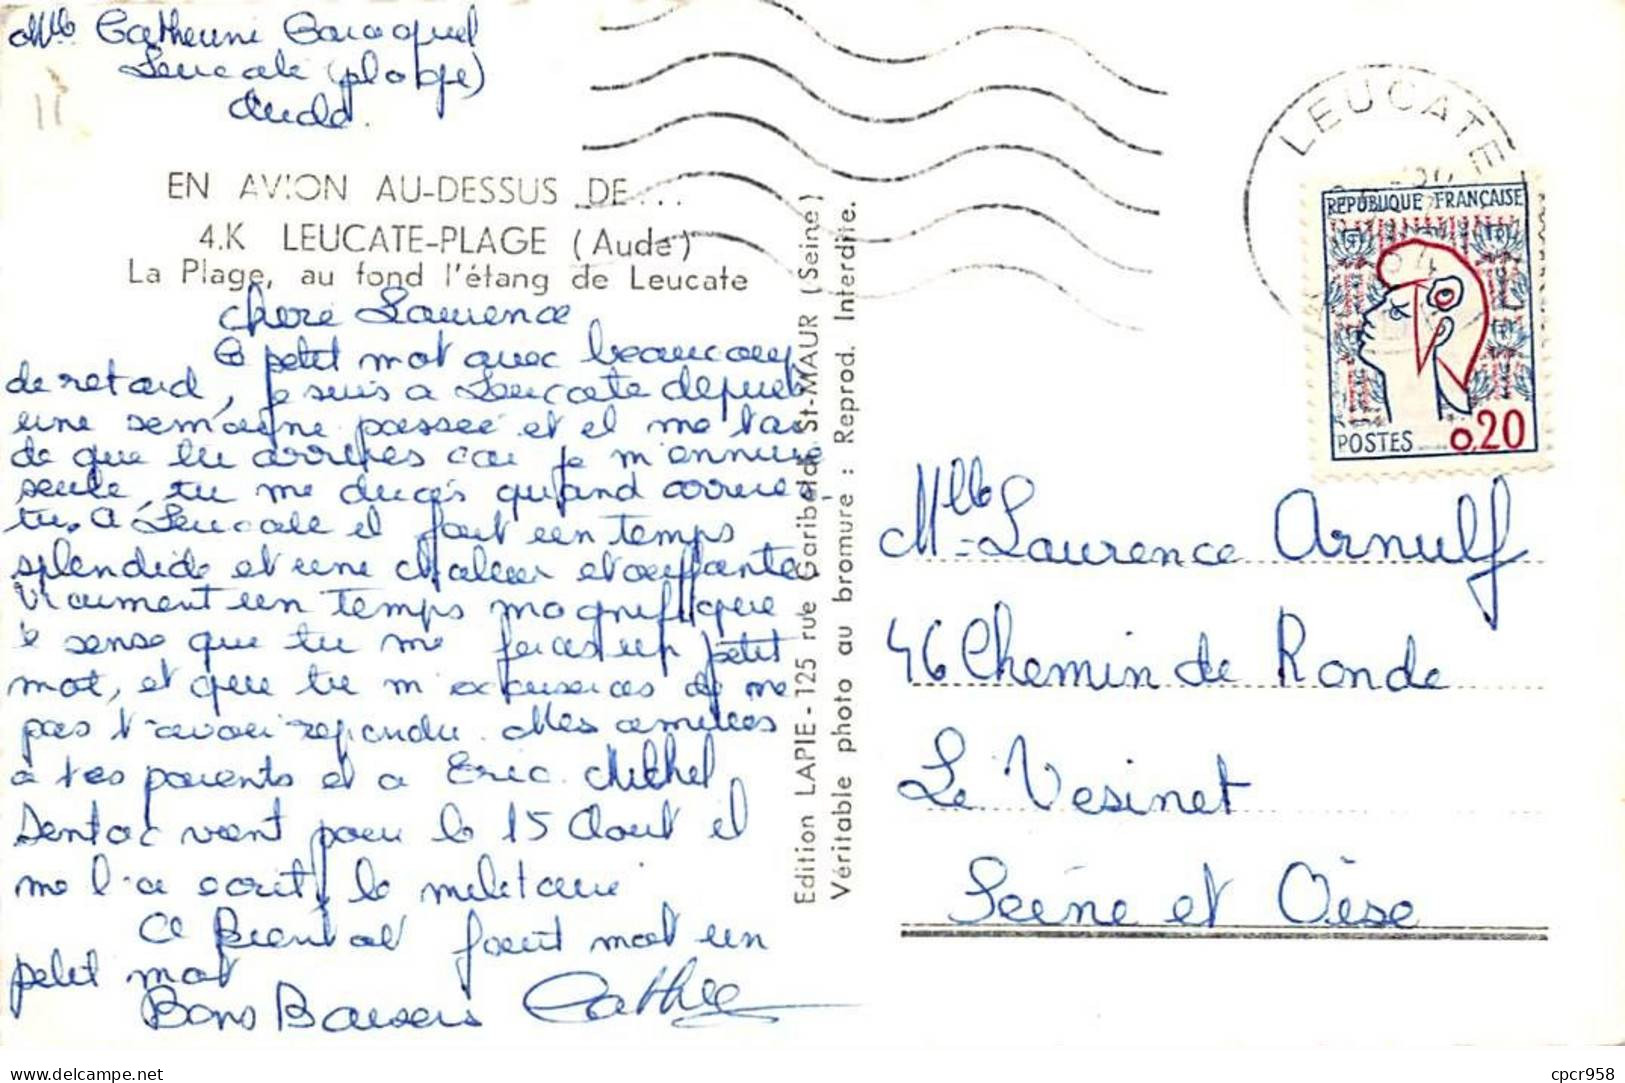 Mlle Catherine
Leucate (plage)
Aude.
11
EN AVION AU-DESSUS DE...
4.K LEUCATE-PLAGE (Aude)
La Plage, au fond l'étang de Leucate
chere Laurence
Ce petit mot avec beaucoup
de retard, je suis a Leucate depuis
une semaine passée et il me tar
de que tu arrives car je m'ennuie
seule, tu me diras quand arrive
tu. A Leucate il fait un temps
splendide et une chaleur etouffante
vraiment un temps magnifique
je pense que tu me feras un petit
mot, et que tu m'excuseras de ne
pas t'avoir repondu. Mes amities
a tes parents et a Eric. Michel
vient pour le 15 Aout il
me l'a ecrit, le militaire
A Bientot fait moi un
petit mot
Bons Baisers Cathie
Edition LAPIE - 125 rue Garibaldi St-MAUR (Seine)
Véritable photo au bromure : Reprod. Interdite.
LEUCATE
RÉPUBLIQUE FRANÇAISE
POSTES 0,20
Mlle Laurence Arnulf
46 Chemin de Ronde
Le Vesinet
Seine et Oise
cpcr958